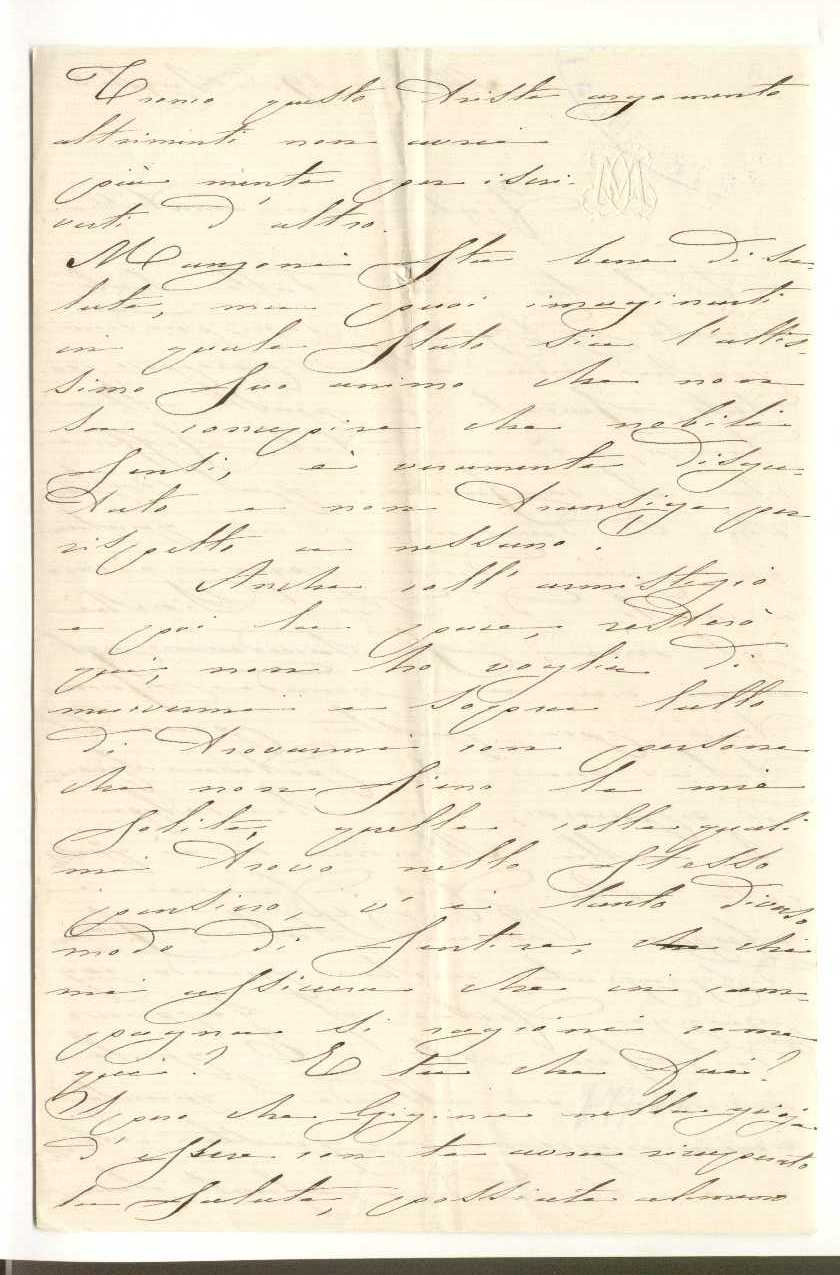 Tronco questo triste argomento
altrimenti non avrei
più mente per iscri-
verti d'altro.
Manzoni sta bene di sa-
lute, ma puoi imaginarti
in quale stato sia l'altis-
simo suo animo che non
sa concepire che nobili
sensi, è veramente disgu-
stato e non transige per
rispetto a nessuno.
Anche coll'armistizio
e poi la pace, resterò
qui, non ho voglia di
muovermi e sopra tutto
di trovarmi con persone
che non sieno le mie
solite, quelle colle quali
mi trovo nello stesso
pensiero, v'è tanto diverso
modo di sentire, chi
mi assicura che in cam-
pagna si ragioni come
qui? E tu che fai?
Spero che Gigina nella gioja
d'essere con te avrà ricuperato
la salute, possiate almeno